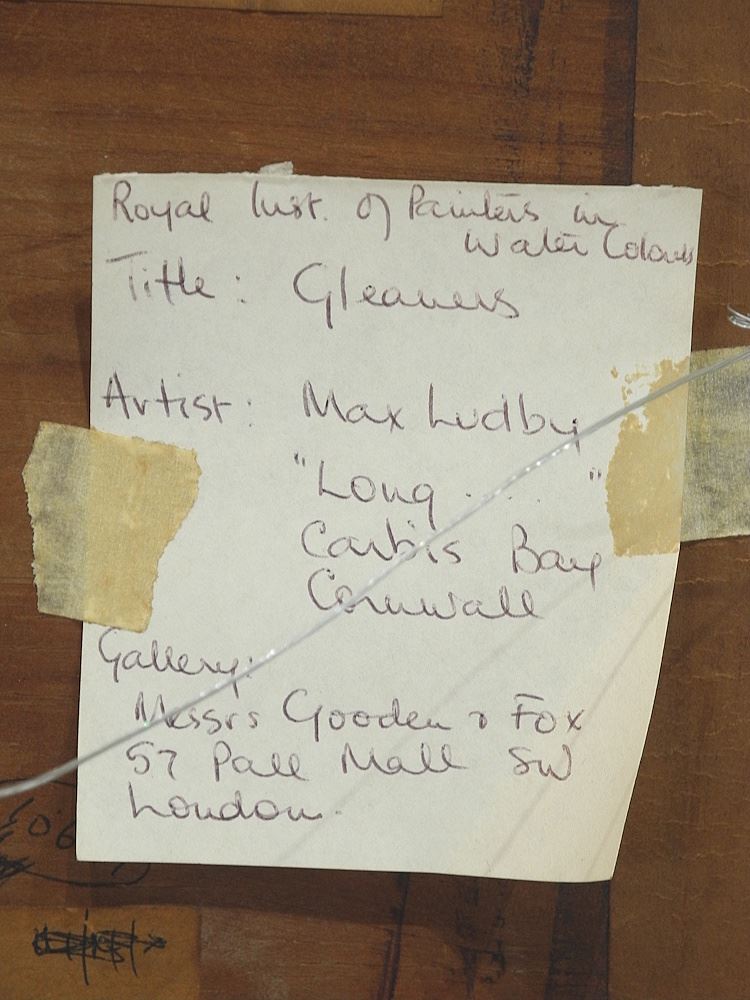 Royal Inst. of Painters in
Water Colours
Title: Gleaners
Artist: Max Ludby
"Long . . . . "
Carbis Bay
Cornwall
Gallery:
Messrs Gooden & Fox
57 Pall Mall SW
London.